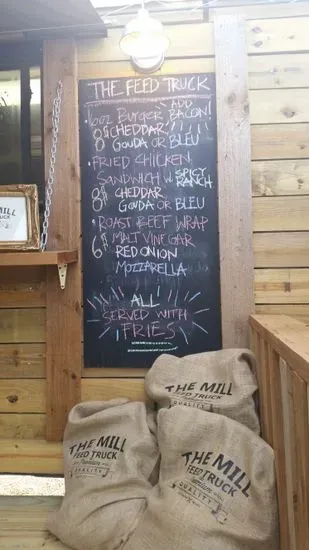 THE FEED TRUCK
•6oz BURGER ADD BACON!
8.5 CHEDDAR
GOUDA OR BLEU
•FRIED CHICKEN
SANDWICH W/ SPICY RANCH
8.5 CHEDDAR
GOUDA OR BLEU
•ROAST BEEF WRAP
MALT VINEGAR
RED ONION
MOZZARELLA
ALL
SERVED WITH
FRIES
MILL
TRUCK
THE MILL
FEED TRUCK
QUALITY
THE MILL
FEED TRUCK
Premium
THE MILL
FEED TRUCK
Premium
QUALITY